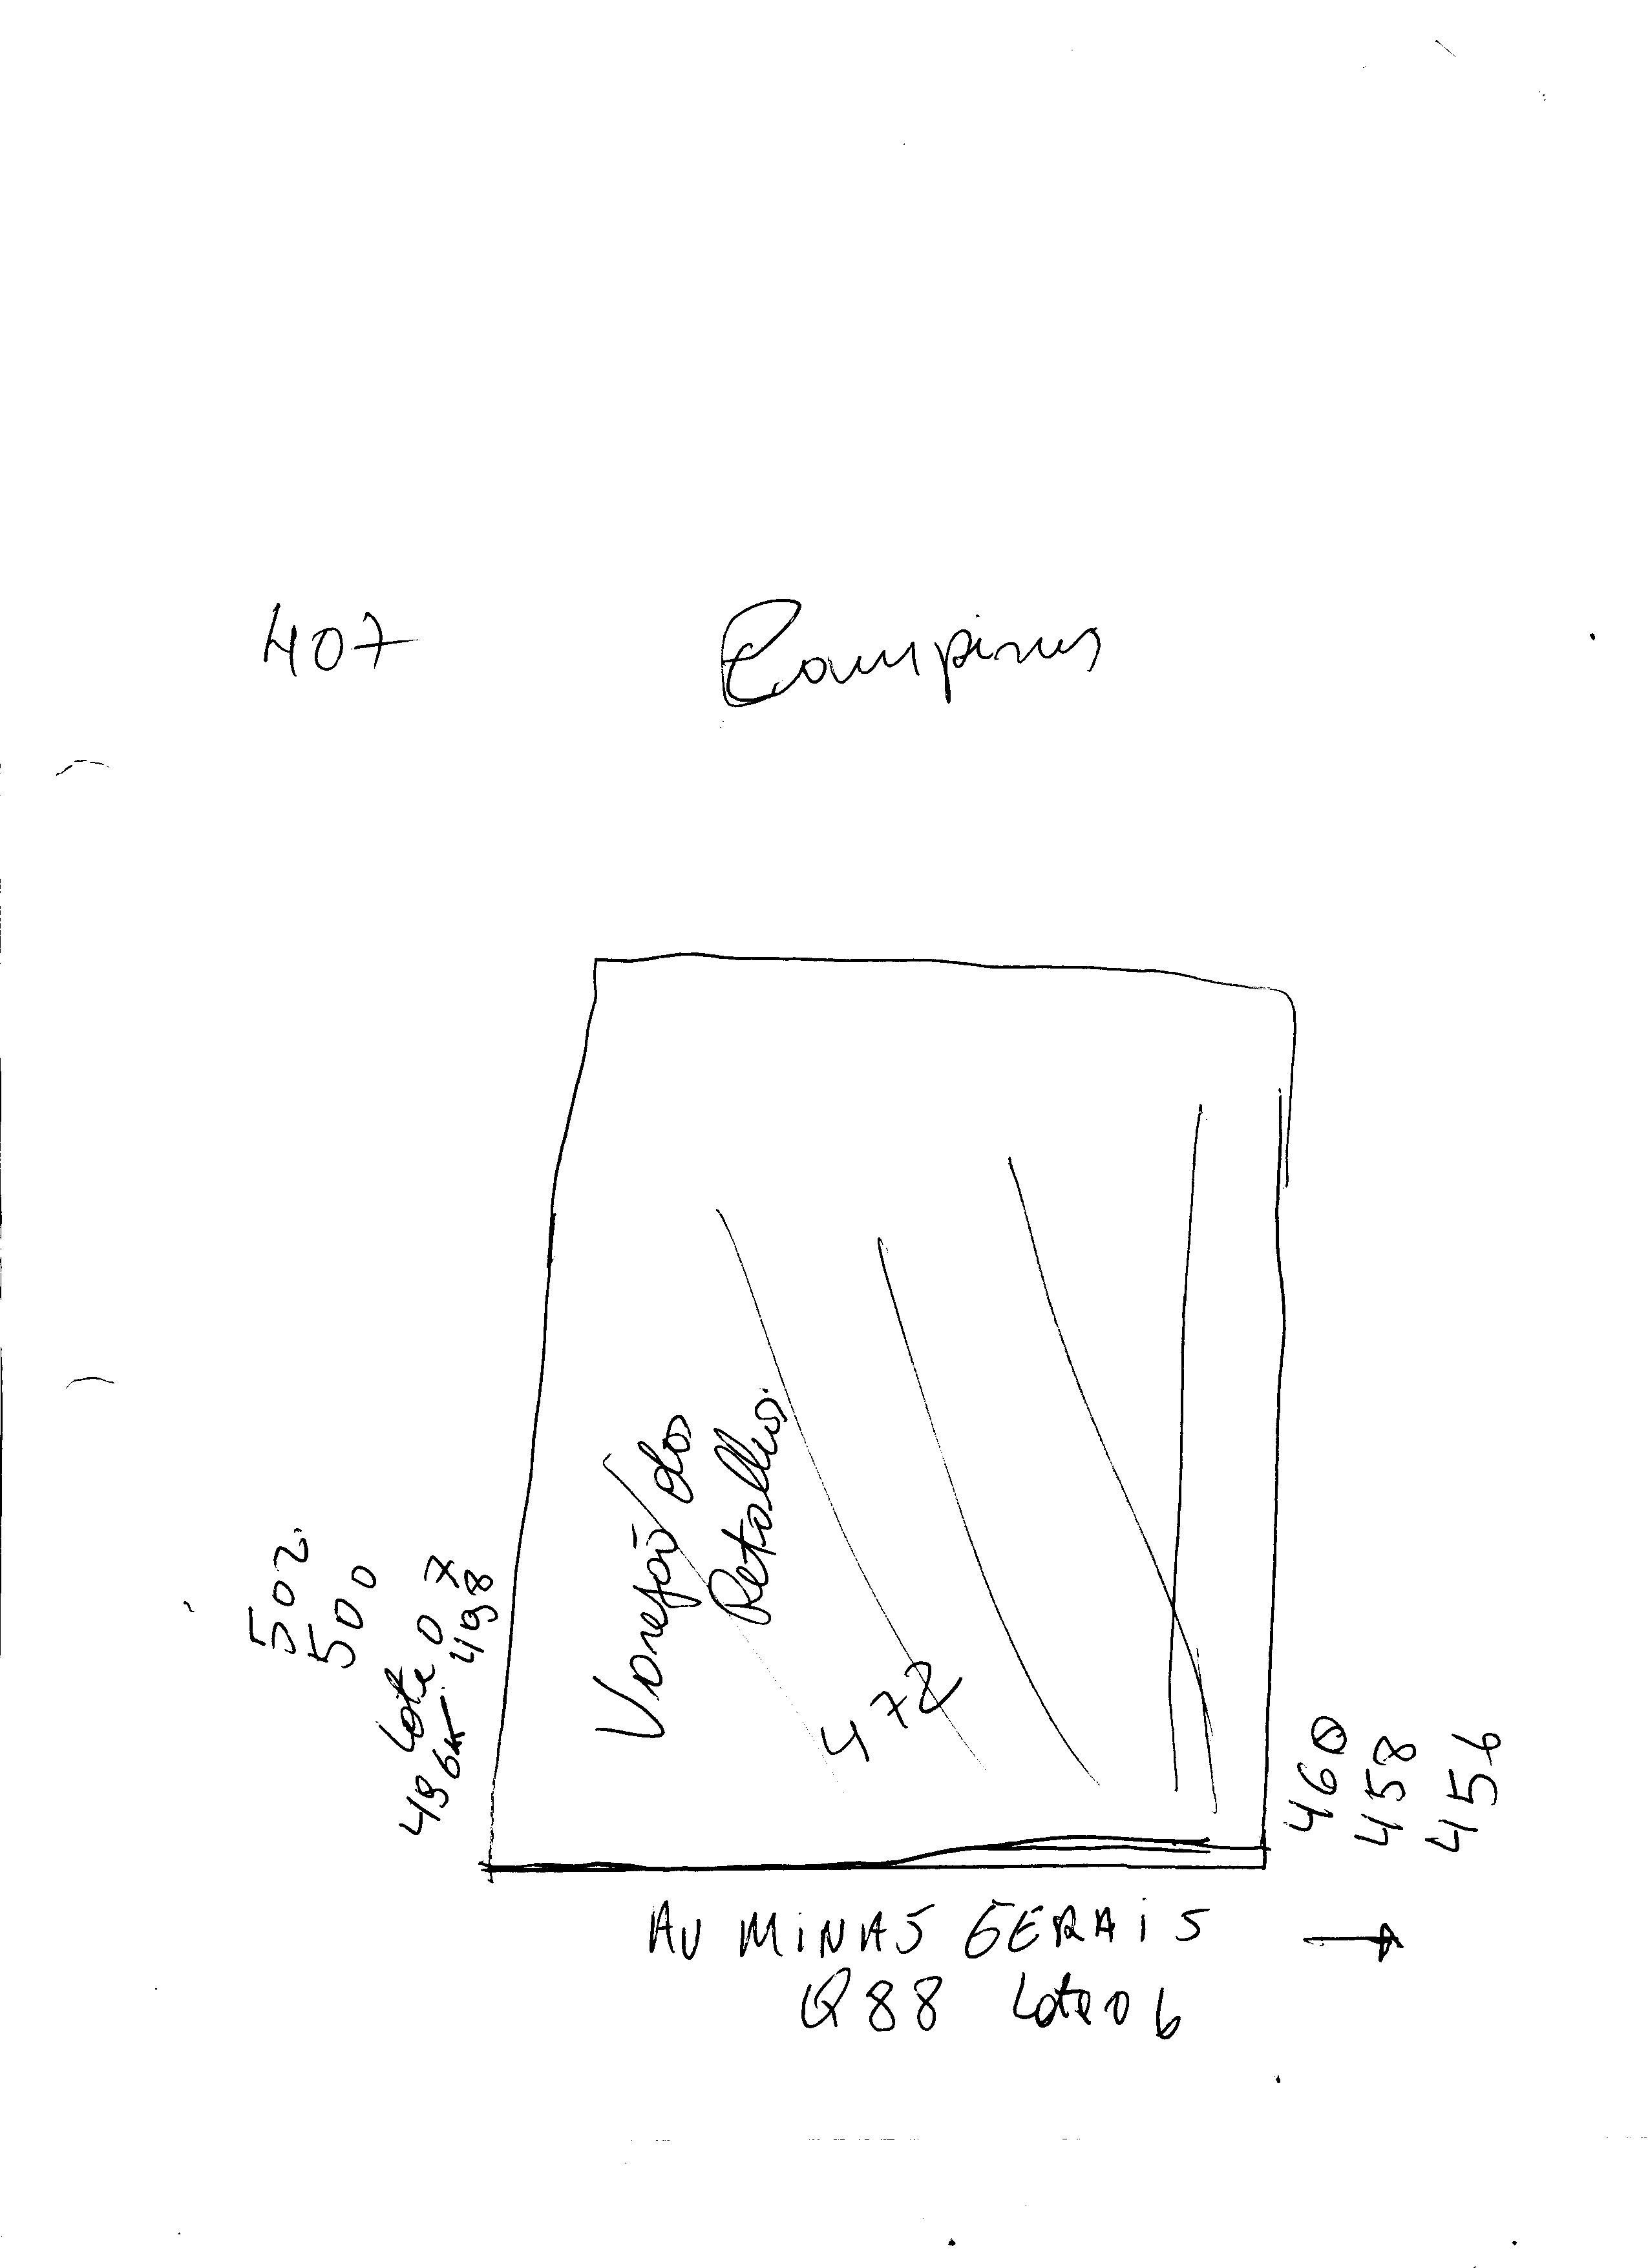 407
Campinas
502
500
Lote 07
498
Varejão dos
Retalhos
472
460
458
456
AV MINAS GERAIS
Q 88 Lote 06